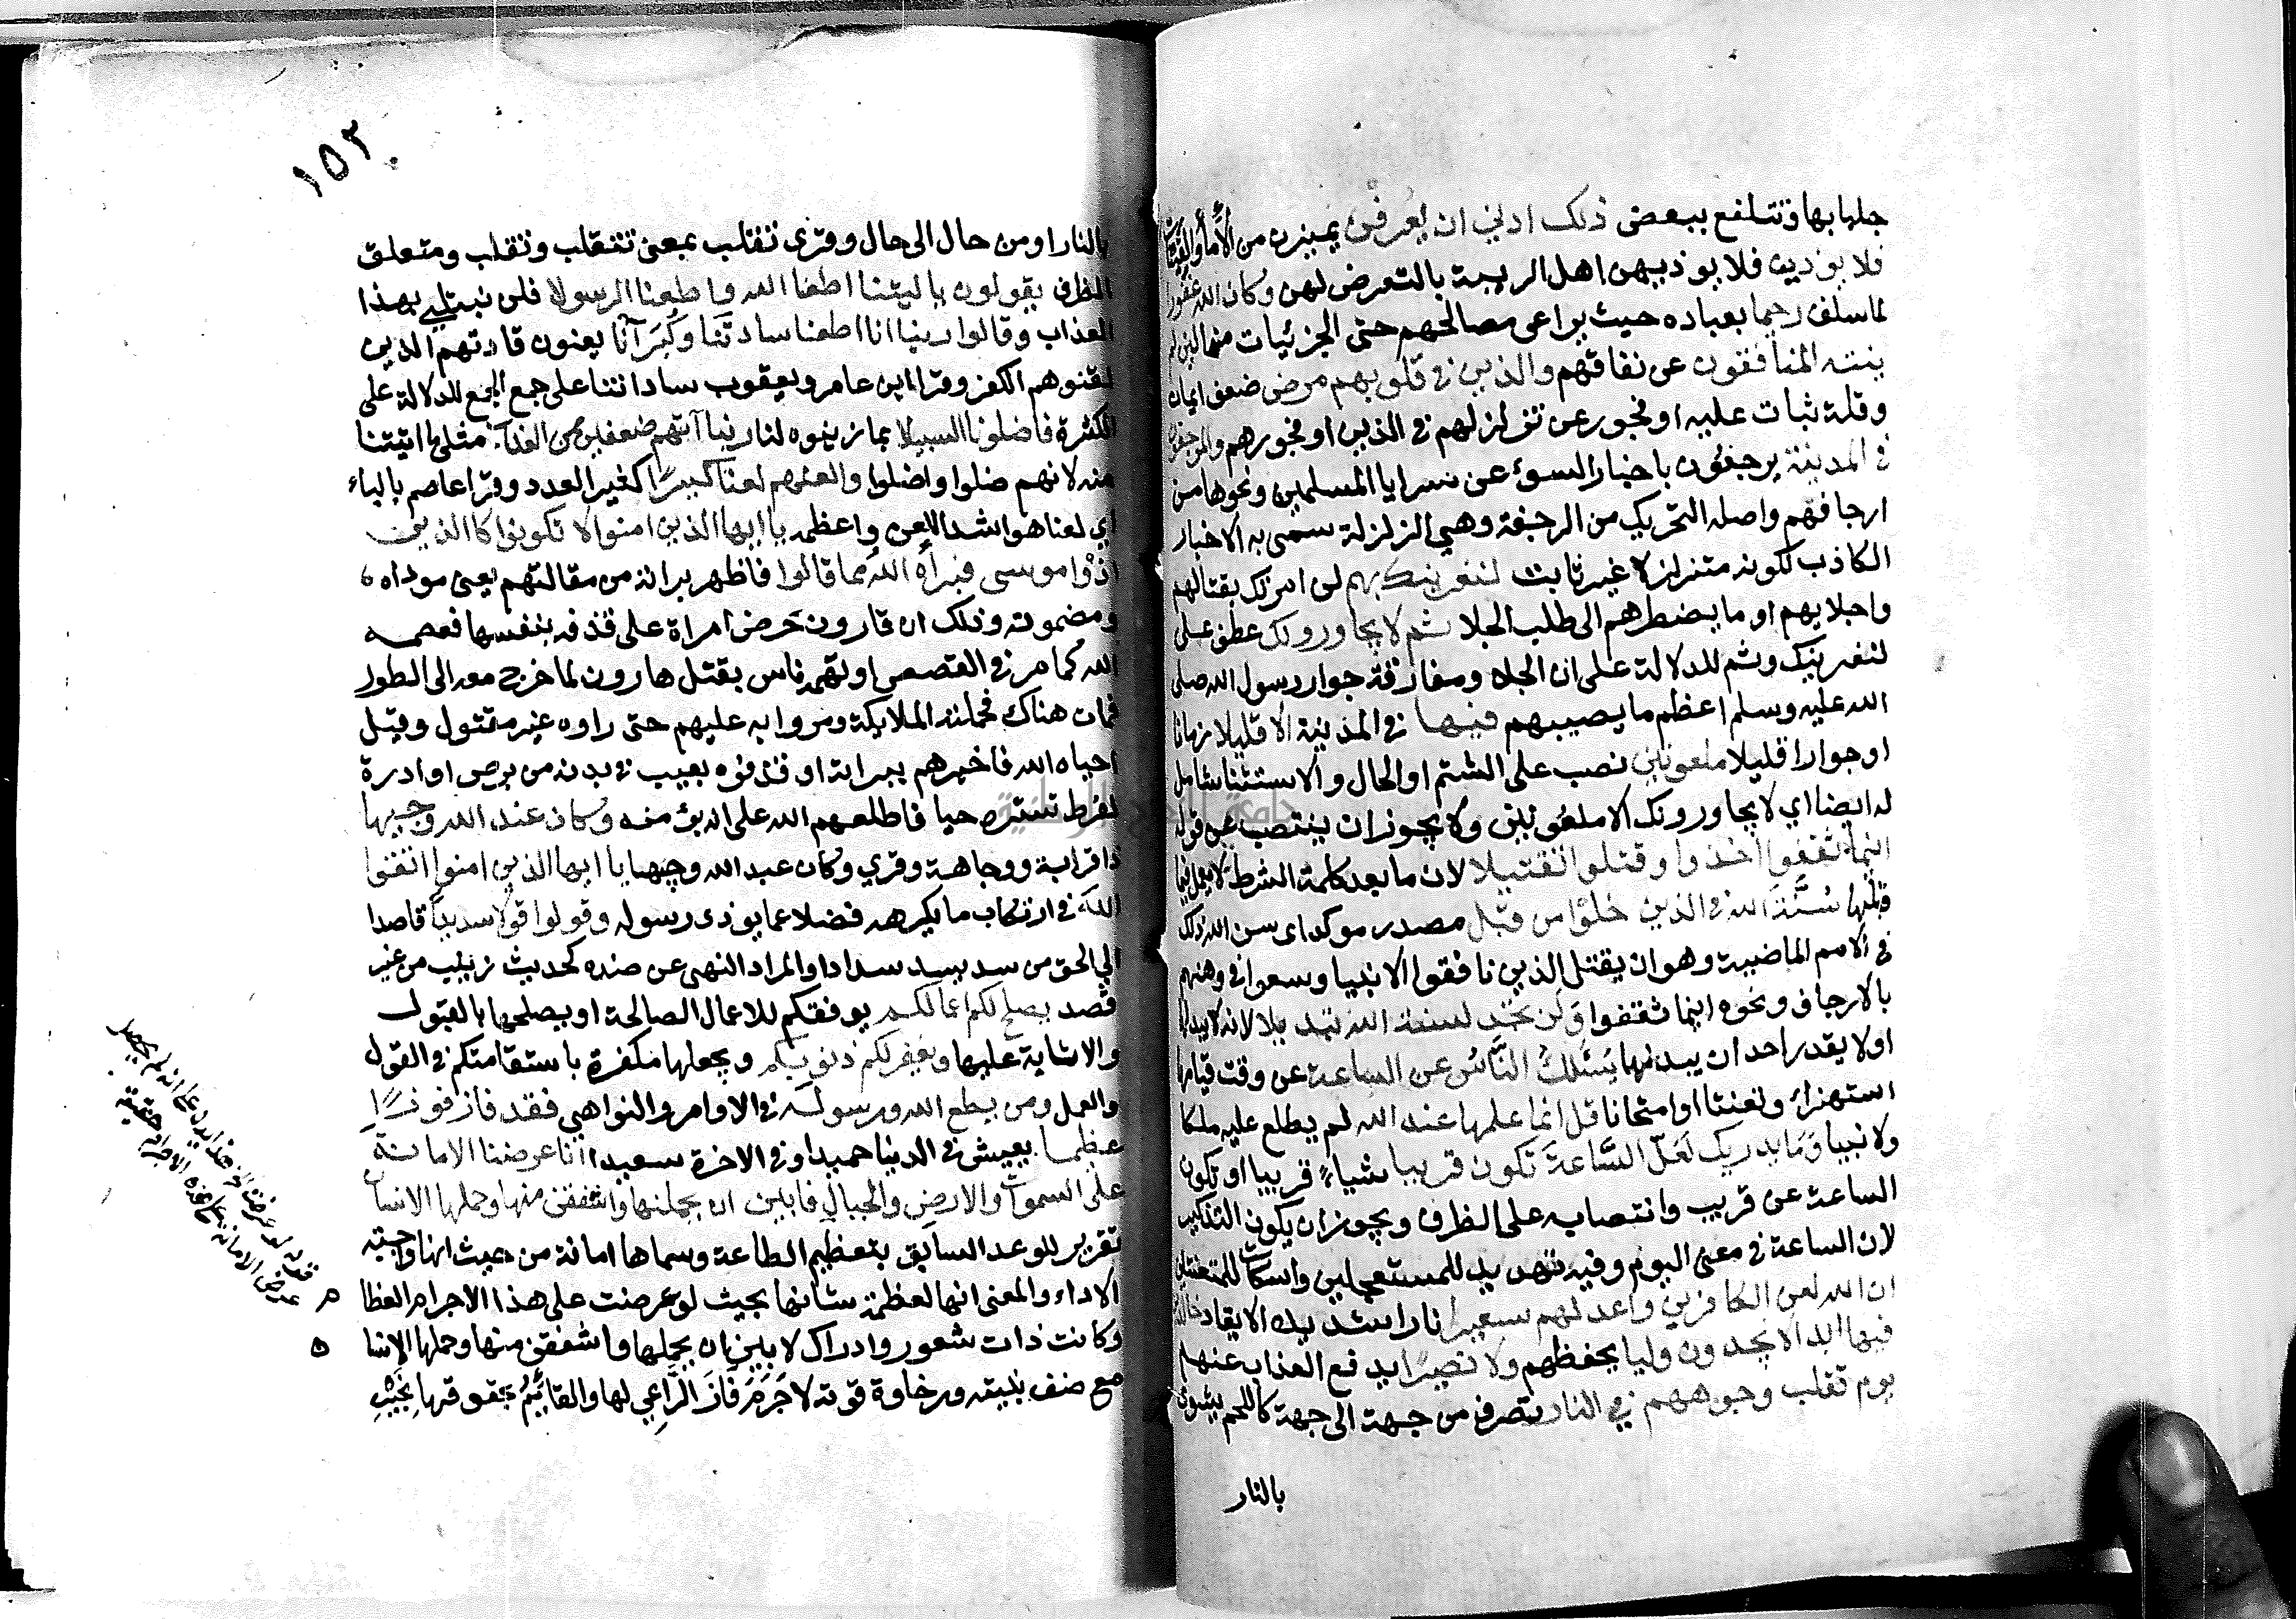 جلبابها وتتلفع ببعض ذلك ادني ان يعرفن يميزن من الأماء والقينات
فلا يؤذين فلا يوذيهن اهل الريبة بالتعرض لهن وكان الله غفورا
لما سلف رحيما بعباده حيث يراعى مصالحهم حتى الجزئيات منها لئن لم
ينته المنافقون عن نفاقهم والذين في قلوبهم مرض ضعف ايمان
وقلة ثبات عليه او فجور عن تزلزلهم في الدين او فجورهم والمرجفون
في المدينة يرجفون باخبار السوء عن سرايا المسلمين ونحوها من
ارجافهم واصله التحريك من الرجفة وهي الزلزلة سمى به الاخبار
الكاذب لكونه متزلزلا غير ثابت لنغرينك بهم لنامرنك بقتالهم
واجلايهم او ما يضطرهم الى طلب الجلا ثم لا يجاورونك عطف على
لنغرينك وثم للدلالة على ان الجلاء ومفارقة جوار رسول الله صلى
الله عليه وسلم اعظم ما يصيبهم فيها في المدينة الا قليلا زمانا
او جوارا قليلا ملعونين نصب على الشتم او الحال والاستثنا شامل
له ايضا اي لا يجاورونك الا ملعونين ولا يجوز ان ينتصب عن قوله
اينما ثقفوا اخذوا وقتلوا تقتيلا لان ما بعد كلمة الشرط لا يعمل فيما
قبلها سُنَّةَ الله في الذين خلوا من قبل مصدر موكد اى سن الله ذلك
في الامم الماضية وهو ان يقتل الذين نافقوا الانبيا وسعوا في وهنهم
بالارجاف ونحوه اينما ثقفوا ولن تجد لسنة الله تبديلا لانه لا يبدلها
او لا يقدر احد ان يبدلها يَسْئَلُكَ النَّاسُ عن الساعة عن وقت قيامها
استهزاء وتعنتا او امتحانا قل انما علمها عند الله لم يطلع عليه ملكا
ولا نبيا وَمَا يدريك لَعَلّ السَّاعَةَ تكون قريبا شياء قريبا او تكون
الساعة عن قريب وانتصابه على الظرف ويجوز ان يكون التذكير
لان الساعة في معنى اليوم وفيه تهديد للمستعجلين واسكات للمتعنتين
ان الله لعن الكافرين واعد لهم سعيرا نارا شديدة الايقاد خالدين
فيها ابدا لا يجدون وليا يحفظهم ولا نصيرًا يدفع العذاب عنهم
يوم تقلب وجوههم في النار تصرف من جهة الى جهة كاللحم يشوى
بالنار
١٥٢
بالنار او من حال الى حال وقرى تقلب بمعنى تتقلب ونقلب ومتعلق
الظرف يقولون ياليتنا اطعنا الله واطعنا الرسولا فلن نبتلي بهذا
العذاب وقالوا ربنا انا اطعنا سادتَنَا وكُبَرَآنا يعنون قادتهم الذين
لقنوهم الكفر وقرا ابن عامر ويعقوب ساداتنا على جمع الجمع للدلالة على
الكثرة فاضلونا السبيلا بما زينوه لنا ربنا آتهم ضعفين من العذاب مثلي ما اتيتنا
منه لانهم ضلوا واضلوا والعنهم لعنا كبيرًا كثير العدد وقرا عاصم بالباء
اي لعنا هو اشد اللعن واعظمه يا ايها الذين امنوا لا تكونوا كالذين
اذوا موسى فبرأه الله مما قالوا فاظهر براته من مقالتهم يعنى موداه
ومضمونه وذلك ان قارون حَرض امراة على قذفه بنفسها فعصمه
الله كما مر في القصص او تهمه ناس بقتل هارون لما خرج معه الى الطور
فمات هناك فحملته الملايكة ومروا به عليهم حتى راوه غير مقتول وقيل
احياه الله فاخبرهم ببراته او قذفوه بعيب في بدنه من برص او ادرة
لفرط تستره حيا فاطلعهم الله على انه برئ منه وكان عند الله وجيها
ذا قرابة ووجاهة وقري وكان عبد الله وجيها يا ايها الذين امنوا اتقوا
الله في ارتكاب ما يكرهه فضلا عما يوذى رسوله وقولوا قولا سديدًا قاصدا
الي الحق من سد يسد سدادا والمراد النهى عن ضده كحديث زينب من غير
قصد يصلح لكم اعمالكم يوفقكم للاعمال الصالحة او يصلحها بالقبول
والاثابة عليها ويغفر لكم ذنوبكم ويجعلها مكفرة باستقامتكم في القول
والعمل ومن يطع الله ورسوله في الاوامر والنواهي فقد فاز فوزًا
عظيما يعيش في الدنيا حميدا وفي الاخرة سعيدا انا عرضنا الامانة
على السموات والارض والجبال فابين ان يحملنها واشفقن منها وحملها الانسان
تقرير للوعد السابق بتعظيم الطاعة وسماها امانة من حيث انها واجبة
الاداء والمعنى انها لعظمة شانها بحيث لو عرضت على هذا الاجرام العظام
وكانت ذات شعور وادراك لابين ان يحملها واشفقن منها وحملها الانسان
مع ضعف بنيته ورخاوة قوته لا جَرَمَ فَازَ الرَّاعِي لها والقائِمُ بحقوقها بخيرِ
قوله لو عرضت
عرض الامانة على هذه الاجرام حقيقة